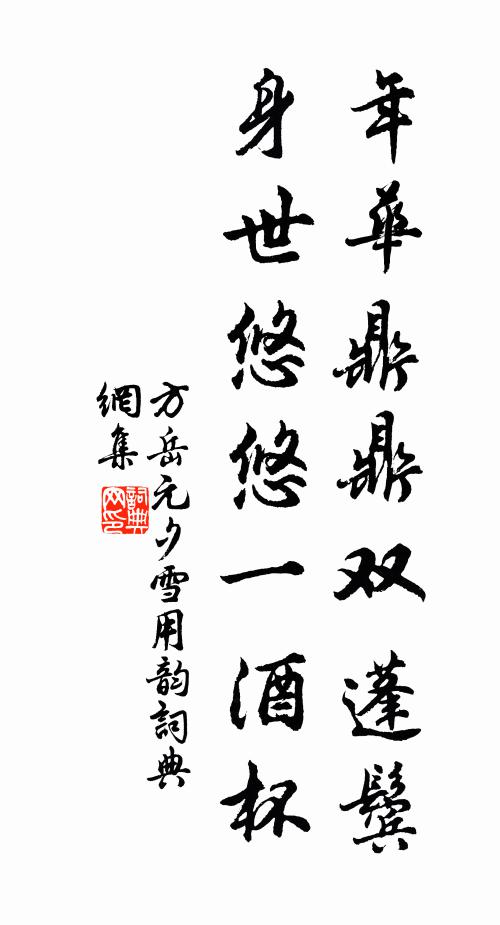 年華鼎鼎双蓬鬓
身世悠悠一酒杯
方岳元夕雪用韵詞典
網集
詞典
网印